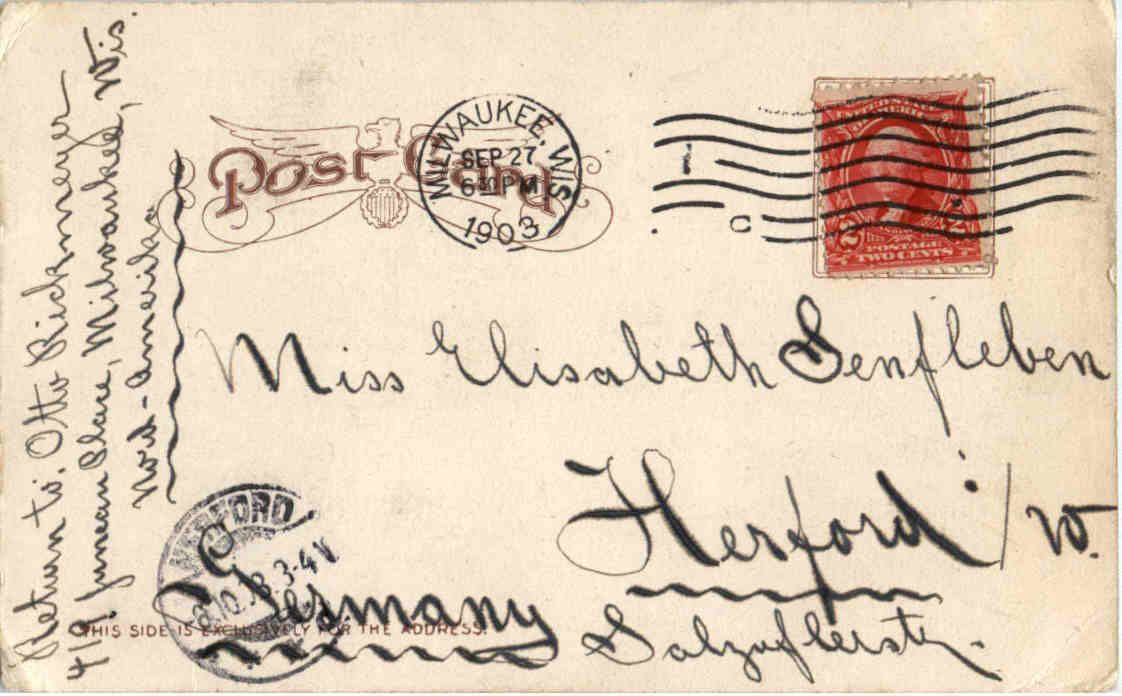 Post Card
MILWAUKEE, WIS.
SEP 27
6-30 PM
1903
UNITED STATES
OF AMERICA
2 2
POSTAGE
TWO CENTS
C
Miss Elisabeth Senfleben
Herford i/W.
Salzuflerstr.
Germany
HERFORD
3-4 V
THIS SIDE IS EXCLUSIVELY FOR THE ADDRESS.
Return to: Otto Rickmeyer
411 Juneau Place, Milwaukee, Wis.
Nord-Amerika